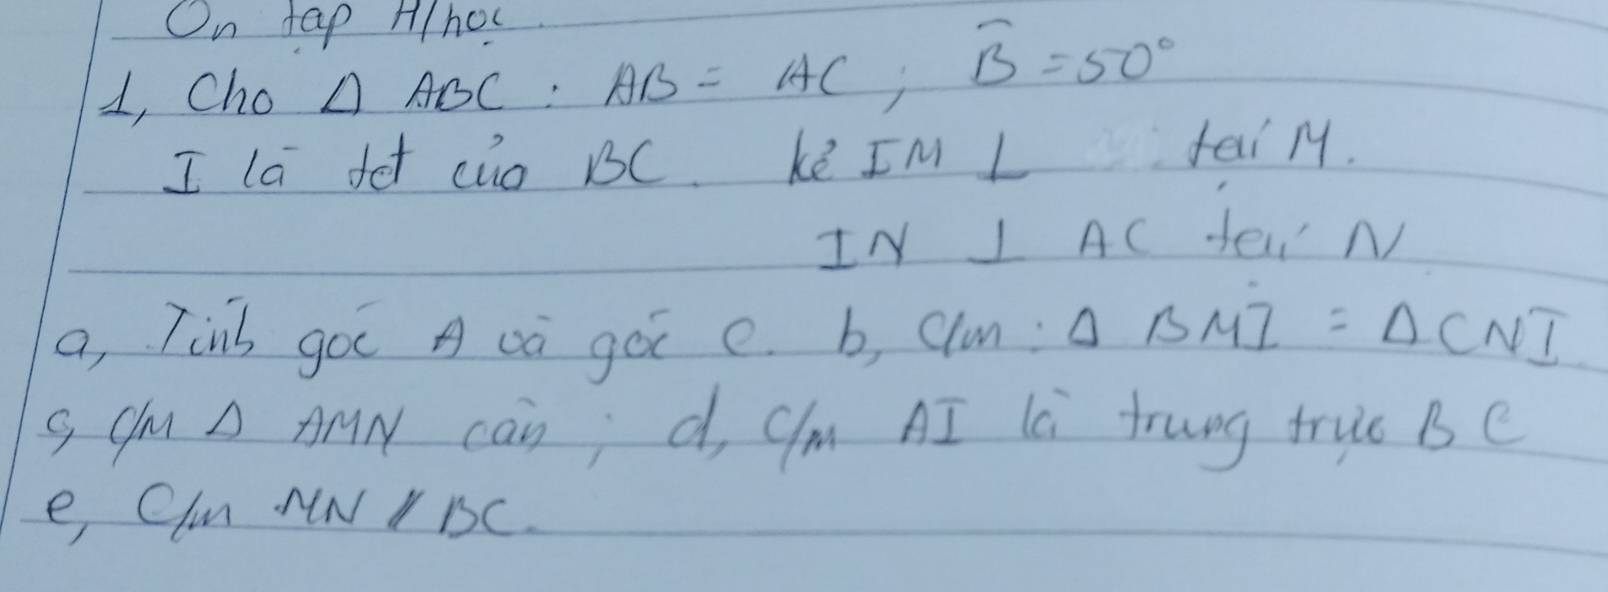 Ôn tập H/học
1, Cho Δ ABC : AB = AC ; B̂ = 50°
I là tđ của BC. kẻ IM ⊥ tại M.
IN ⊥ AC tại N
a, Tính góc A và góc C. b, C/m : Δ BMI = Δ CNI
c, C/M Δ AMN cân ; d, C/m AI là trung trực BC
e, C/m MN // BC.